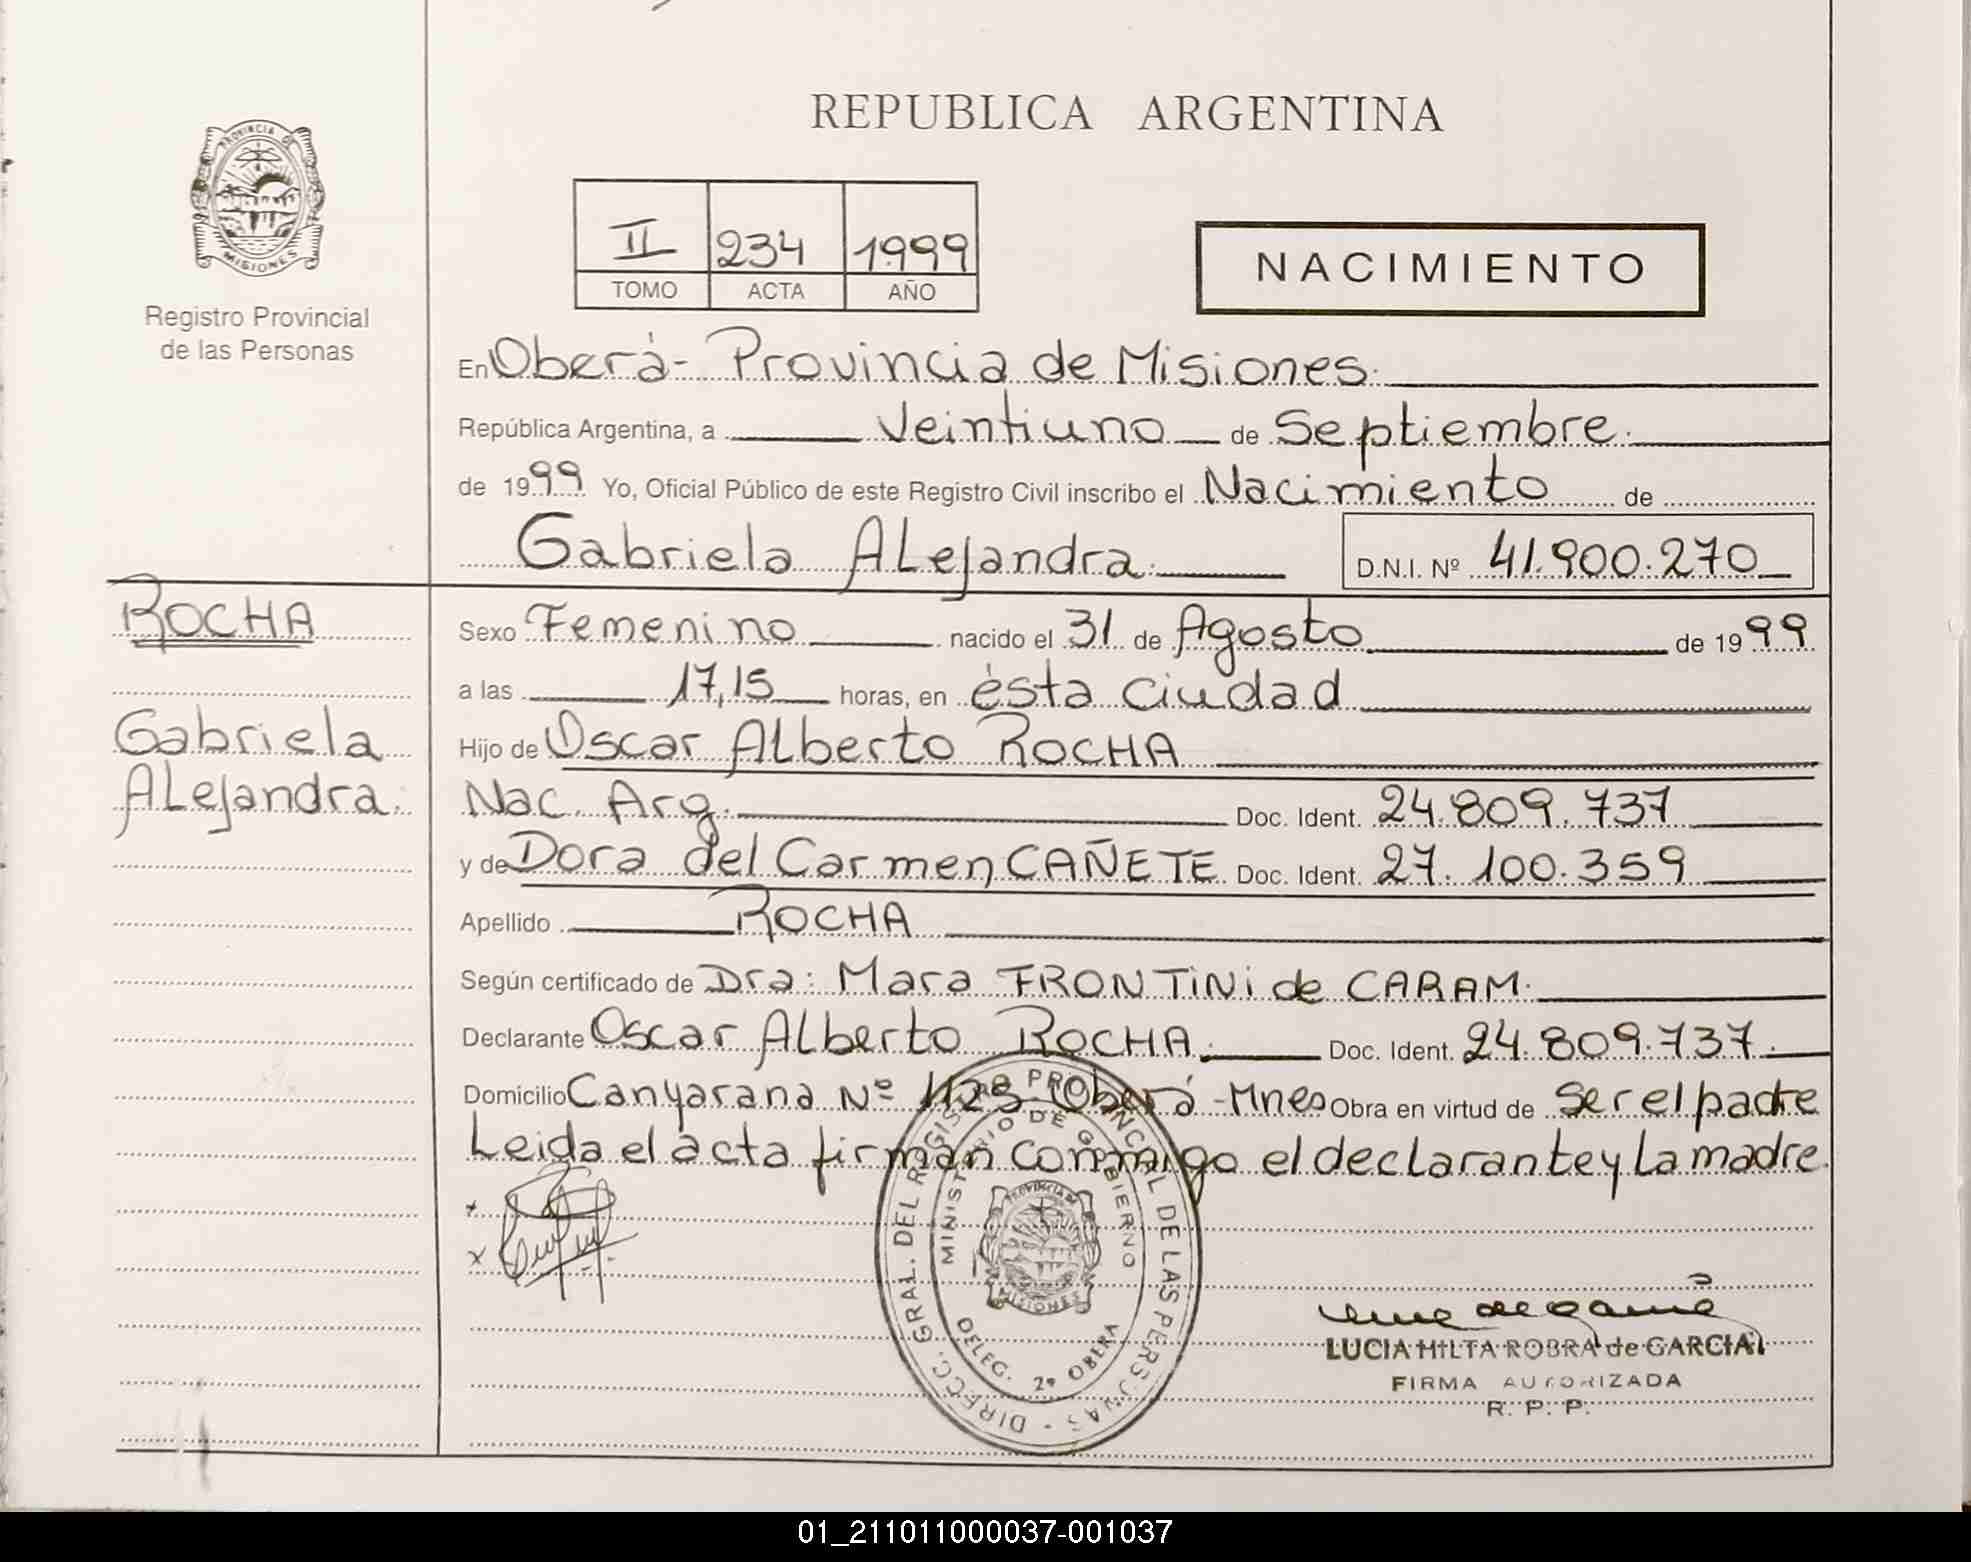 REPUBLICA ARGENTINA
PROVINCIA DE
MISIONES
Registro Provincial
de las Personas
II 234 1999
TOMO ACTA AÑO
NACIMIENTO
En Oberá - Provincia de Misiones.
República Argentina, a Veintiuno de Septiembre.
de 1999 Yo, Oficial Público de este Registro Civil inscribo el Nacimiento de
Gabriela ALejandra. D.N.I. Nº 41.900.270
ROCHA
Gabriela
ALejandra.
Sexo Femenino nacido el 31 de Agosto de 1999
a las 17,15 horas, en ésta ciudad
Hijo de Oscar ALberto ROCHA
Nac. Arg. Doc. Ident. 24.809.737
y de Dora del Carmen CAÑETE Doc. Ident. 27.100.359
Apellido ROCHA
Según certificado de Dra: Mara FRONTiNi de CARAM.
Declarante Oscar ALberto ROCHA. Doc. Ident. 24.809.737.
Domicilio Canyarana Nº 1125 Oberá - Mnes Obra en virtud de Ser el padre
Leida el acta firman conmigo el declarante y La madre.
DIRECC. GRAL. DEL REGISTRO PROVINCIAL DE LAS PERSONAS
MINISTERIO DE GOBIERNO
PROVINCIA DE
MISIONES
DELEG. 2ª OBERA
LUCIA HILTA ROBRA de GARCIA
FIRMA AUTORIZADA
R. P. P.
01_211011000037-001037